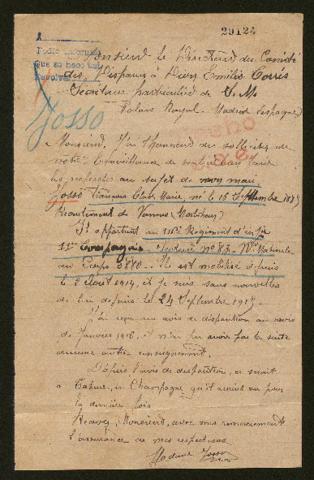 29124
Pedir informes
que se haga una
Monsieur le Directeur du Comité
des Disparus à Don Emilio Torres
Secrétaire particulier de S. M.
Palais Royal - Madrid (Espagne)
Josso
Monsieur, J'ai l'honneur de solliciter de
votre bienveillance de vouloir bien faire
les recherches au sujet de mon mari
Josso François Marie né le 16 septembre
Recrutement de Vannes (Morbihan)
Il appartient au Régiment d'infie
Compagnie
au Corps Il est mobilisé depuis
le 2 Août 1914, et je suis sans nouvelles
de lui depuis le 24 Septembre 1915.
J'ai reçu un avis de disparition au mois
de Janvier 1916, et n'en ai reçu par la suite
aucun autre renseignement.
D'après l'avis de disparition, ce serait
à Tahure, en Champagne qu'il aurait été vu pour
la dernière fois.
Recevez, Monsieur, avec mes remerciements
l'assurance de mes respects
Madame Josso